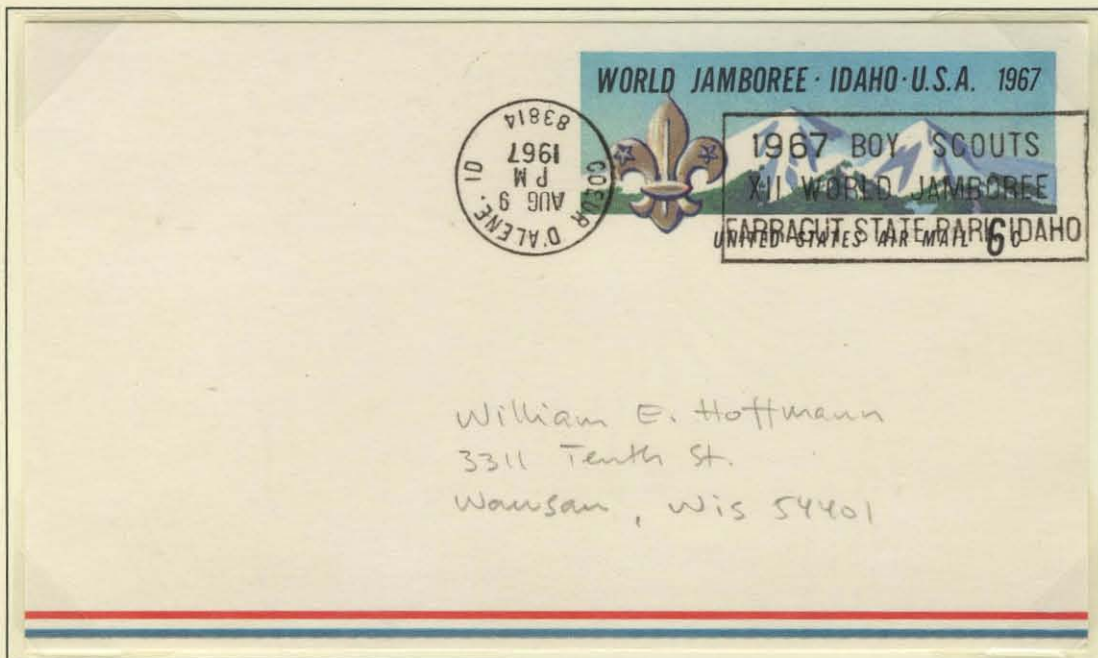 WORLD JAMBOREE · IDAHO · U.S.A. 1967
COEUR D'ALENE. ID
AUG 9
PM
1967
83814
1967 BOY SCOUTS
XII WORLD JAMBOREE
FARRAGUT STATE PARK IDAHO
UNITED STATES AIR MAIL 6c
William E. Hoffmann
3311 Tenth St.
Wausau, Wis 54401